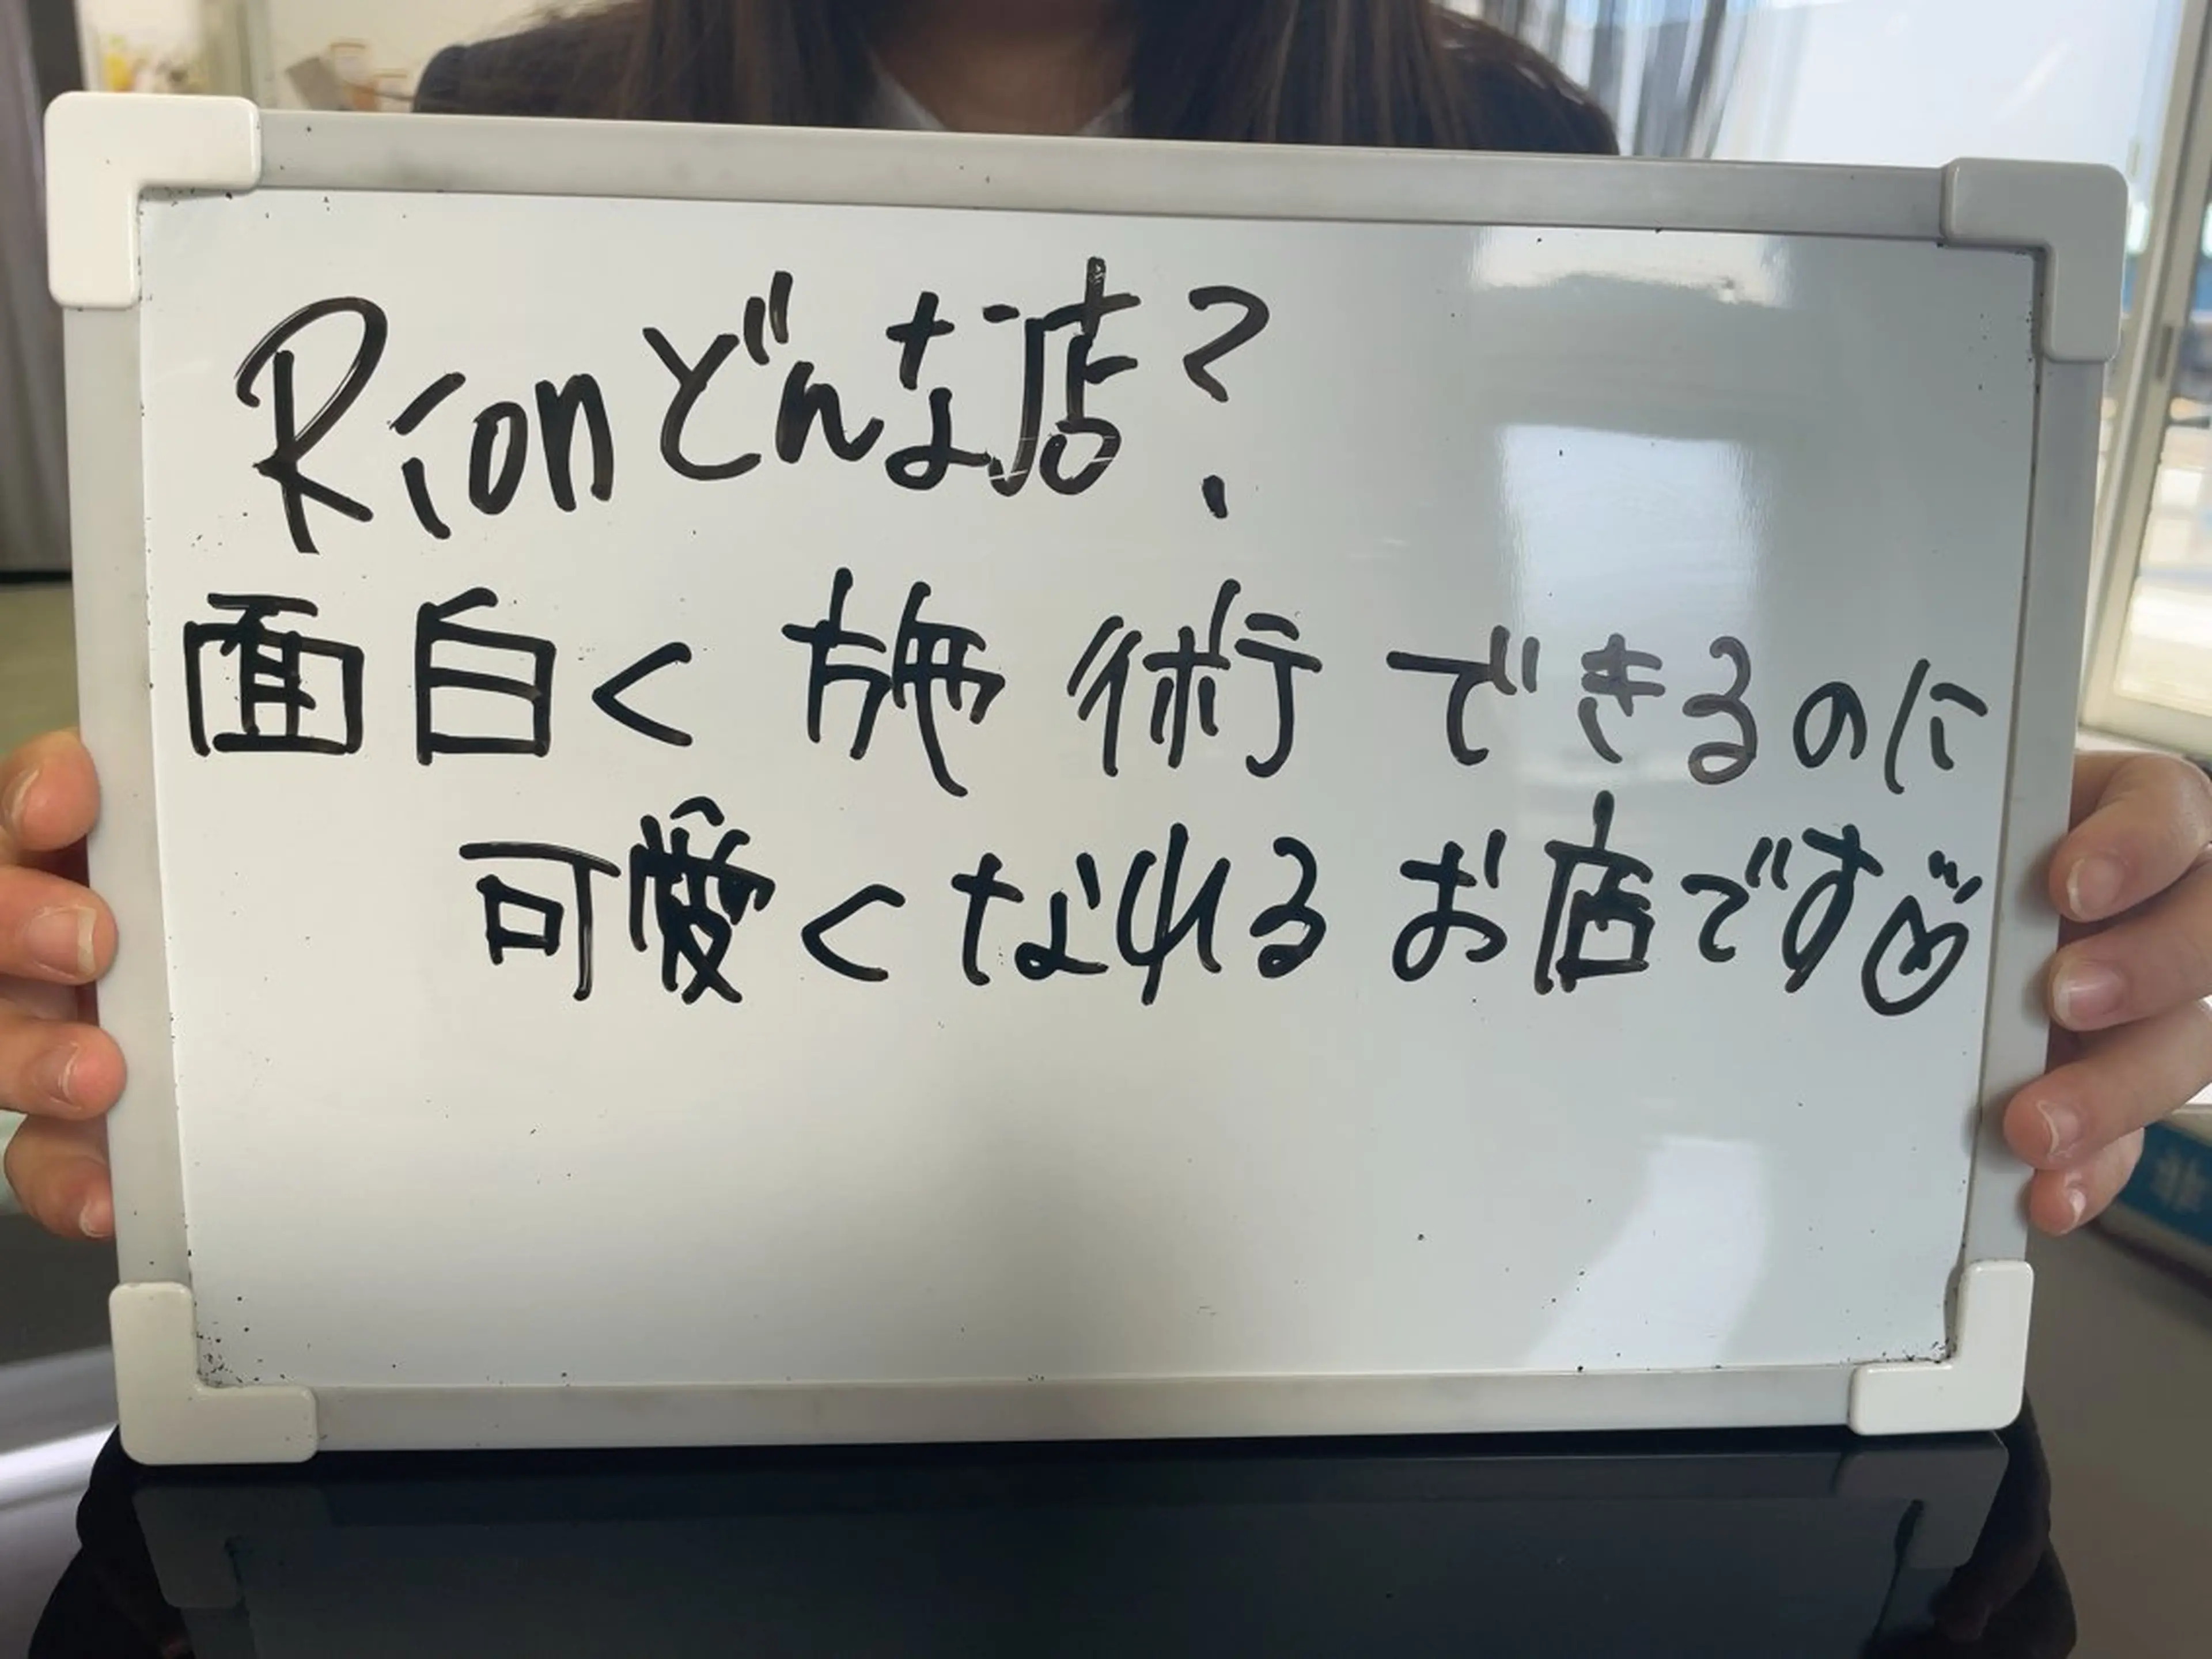 Rionどんな店?
面白く施術できるのに
可愛くなれるお店です